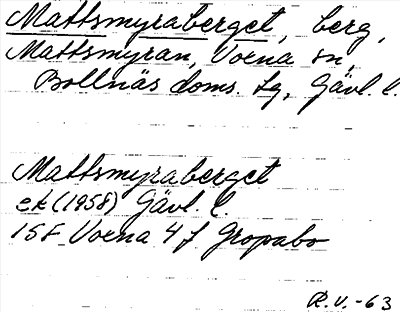 Mattsmyraberget, berg,
Mattsmyran, Voxna sn,
Bollnäs doms. lg, Gävl. l.
Mattsmyraberget
ek (1958) Gävl. l.
15F Voxna 4 f Gropabo
R.V. -63